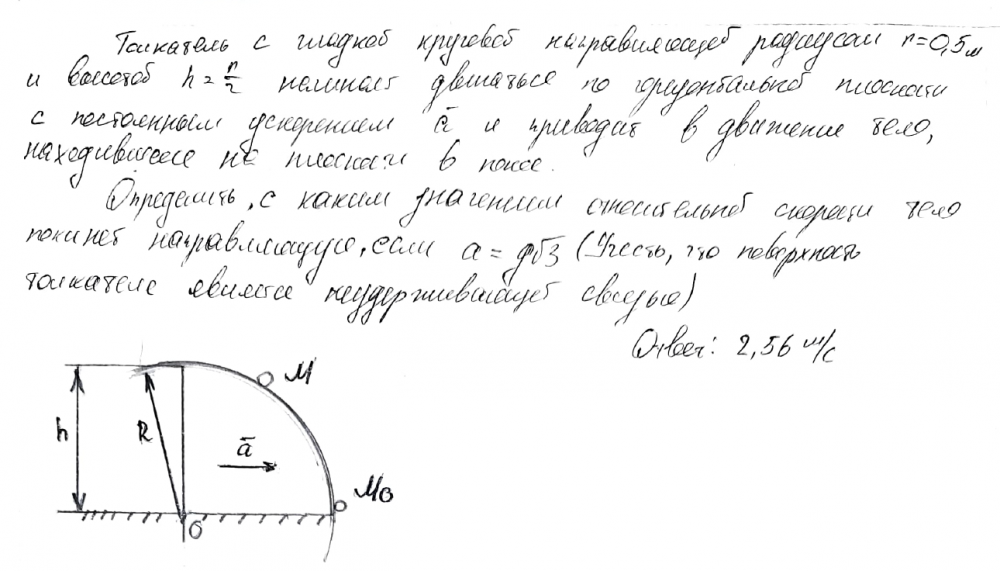 Толкатель с гладкой круговой направляющей радиусом r=0,5 м
и высотой h = r/2 начинает двигаться по горизонтальной плоскости
с постоянным ускорением a̅ и приводит в движение тело,
находившееся на плоскости в покое.
Определить, с каким значением относительной скорости тело
покинет направляющую, если a = g√3 (Учесть, что поверхность
толкателя является неудерживающей связью)
Ответ: 2,56 м/с
M
h
R
a̅
M0
O